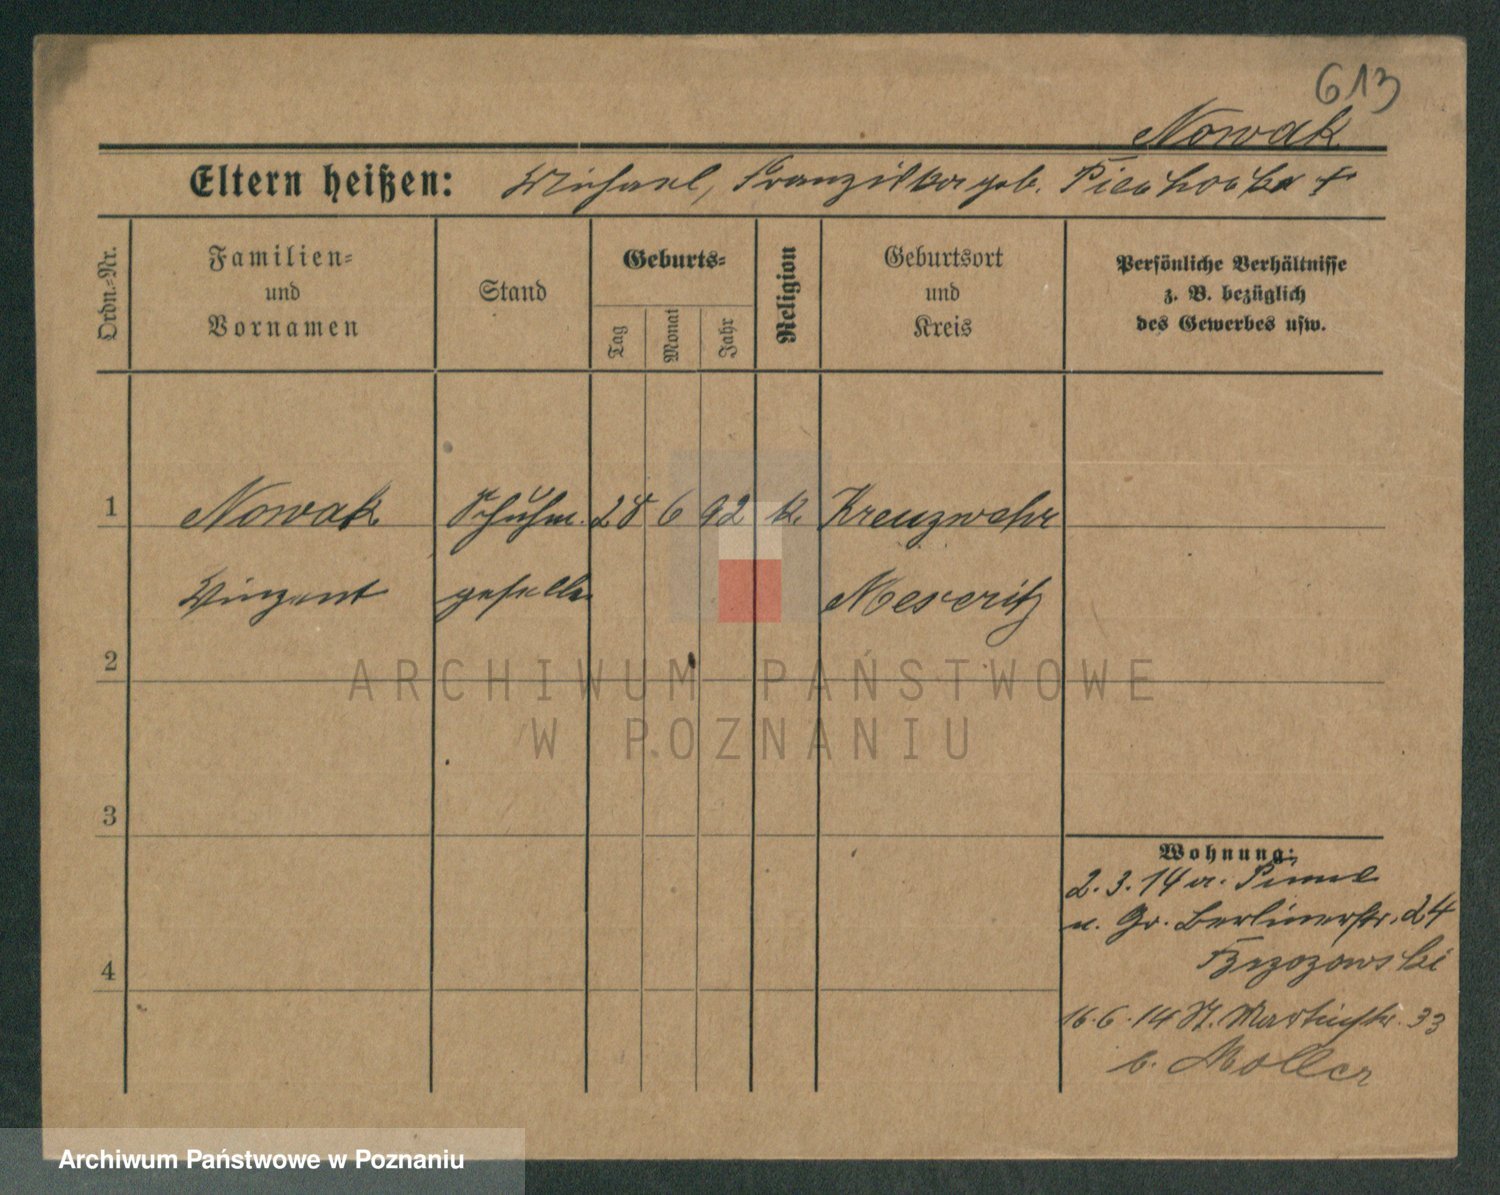 613
Nowak
Eltern heißen: Michael, Franziska geb. Piechocka †
Ordn.-Nr.
Familien-
und
Vornamen
Stand
Geburts-
Tag
Monat
Jahr
Religion
Geburtsort
und
Kreis
Persönliche Verhältnisse
z. B. bezüglich
des Gewerbes usw.
1 Nowak Schuhm. 28 6 92 k. Kreuzwehr
Vinzent geselle Meseritz
2
3
4
Wohnung:
2. 3. 14 a. Pinne
n. Gr. Berlinerstr. 24
Brzozowski
16. 6. 14 St. Martinstr. 33
b. Moller
ARCHIWUM PAŃSTWOWE
W POZNANIU
Archiwum Państwowe w Poznaniu